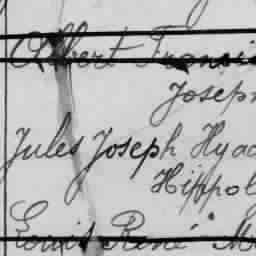 Albert Franci
Joseph
Jules Joseph Hyac
Hippol
Louis René M